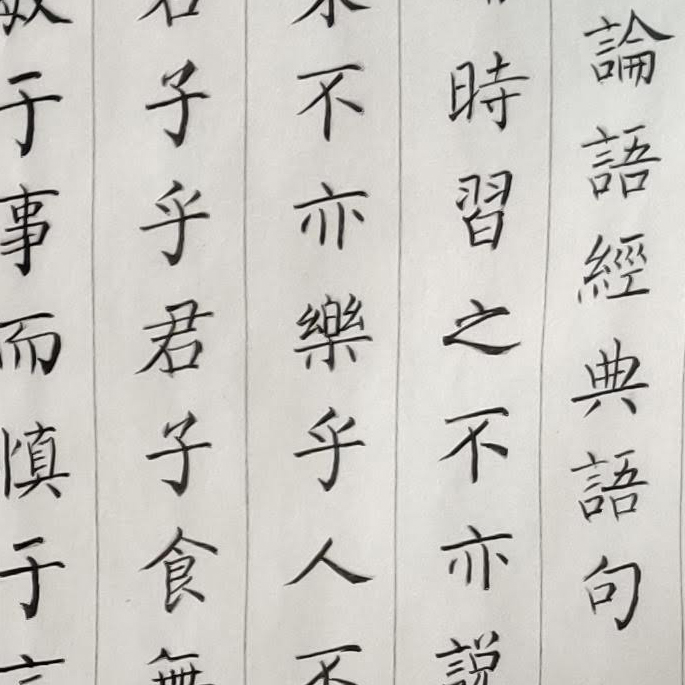 論語經典語句
時習之不亦説
不亦樂乎人不
君子乎君子食無
敏于事而慎于言